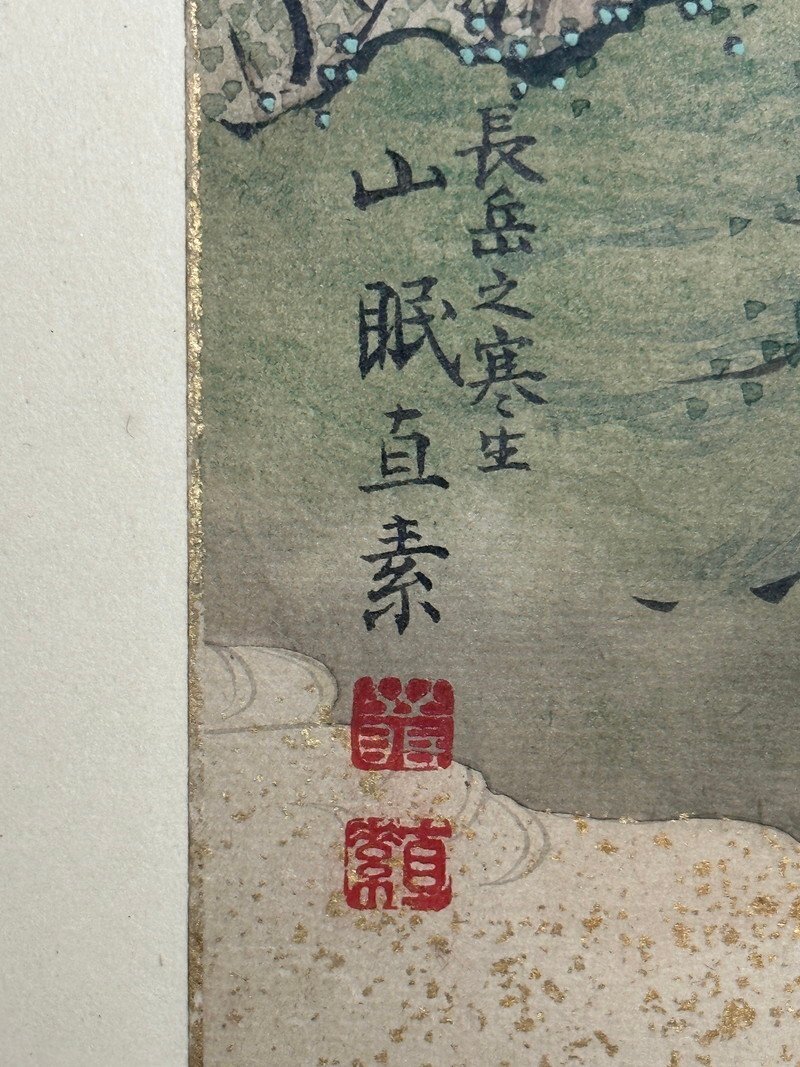 長岳之寒生
山眠直素
直素